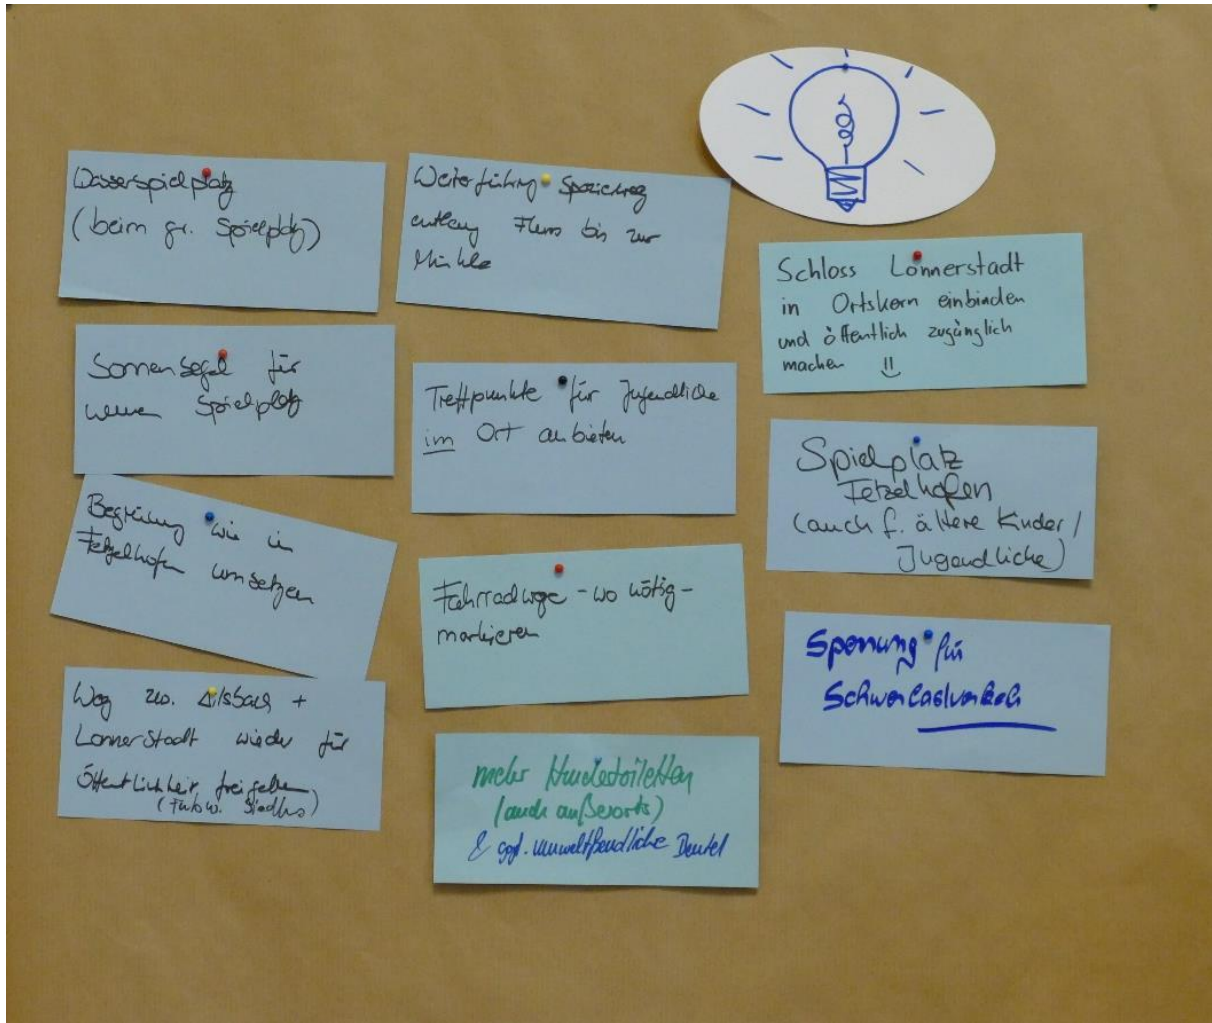 Wasserspielplatz
(beim gr. Spielplatz)
Sonnensegel für
neuen Spielplatz
Begrünung wie in
Fetzelhofen umsetzen
Weg zw. Ailsbach +
Lonnerstadt wieder für
Öffentlichkeit freigeben
Weiterführung Spazierweg
entlang Fluss bis zur
Mühle
Treffpunkte für Jugendliche
im Ort anbieten
Fahrradwege - wo nötig -
markieren
mehr Hundetoiletten
(auch außerorts)
& ggf. umweltfreundliche Beutel
Schloss Lonnerstadt
in Ortskern einbinden
und öffentlich zugänglich
machen !!
Spielplatz
Fetzelhofen
(auch f. ältere Kinder /
Jugendliche)
Sperrung für
Schwerlastverkehr